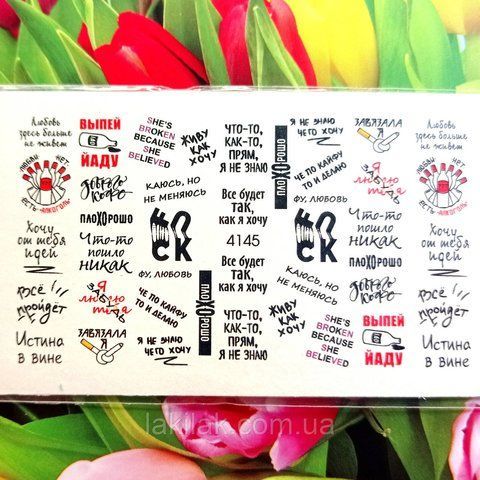 Любовь
здесь больше
не живет
ВЫПЕЙ
ЯДУ
SHE'S
BROKEN
BECAUSE
SHE
BELIEVED
ЖИВУ
КАК
ХОЧУ
ЧТО-ТО,
КАК-ТО,
ПРЯМ,
Я НЕ ЗНАЮ
ПЛОХОРОШО
Я НЕ ЗНАЮ
ЧЕГО ХОЧУ
ЗАВЯЗАЛА
Любовь
здесь больше
не живет
ЛЮБВИ НЕТ
ЕСТЬ АЛКОГОЛЬ
КАЮСЬ, НО
НЕ МЕНЯЮСЬ
ЧЕ ПО КАЙФУ
ТО И ДЕЛАЮ
Я
люблю
тебя
ЛЮБВИ НЕТ
ЕСТЬ АЛКОГОЛЬ
ПЛОХОРОШО
Все будет
так,
как я хочу
ФУ, ЛЮБОВЬ
Что-то
пошло
никак
Хочу
от тебя
идей
Что-то
пошло
никак
CK
ФУ, ЛЮБОВЬ
4145
Все будет
так,
как я хочу
CK
КАЮСЬ, НО
НЕ МЕНЯЮСЬ
ПЛОХОРОШО
Хочу
от тебя
идей
Всё
пройдет
Я
люблю
тебя
ЧЕ ПО КАЙФУ
ТО И ДЕЛАЮ
ПЛОХОРОШО
ЖИВУ
КАК
ХОЧУ
SHE'S
BROKEN
BECAUSE
SHE
BELIEVED
ВЫПЕЙ
ЯДУ
Всё
пройдет
Истина
в вине
ЗАВЯЗАЛА
Я НЕ ЗНАЮ
ЧЕГО ХОЧУ
ЧТО-ТО,
КАК-ТО,
ПРЯМ,
Я НЕ ЗНАЮ
Истина
в вине
lakilak.com.ua